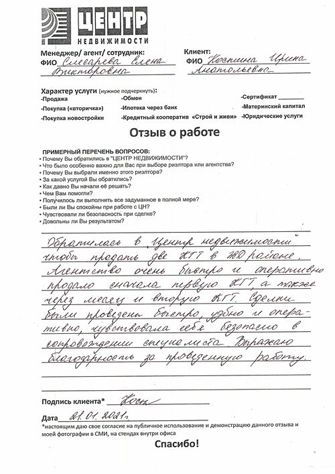 ЦЕНТР
НЕДВИЖИМОСТИ
Менеджер/ агент/ сотрудник:
Клиент:
ФИО Слесарева Елена
Викторовна
ФИО Костина Ирина
Анатольевна
Характер услуги (нужное подчеркнуть):
-Продажа -Обмен -Сертификат
-Покупка («вторичка») -Ипотека через банк -Материнский капитал
-Покупка новостройки -Кредитный кооператив «Строй и живи» -Юридические услуги
Отзыв о работе
ПРИМЕРНЫЙ ПЕРЕЧЕНЬ ВОПРОСОВ:
• Почему Вы обратились в "ЦЕНТР НЕДВИЖИМОСТИ"?
• Что было особенно важно для Вас при выборе риэлтора или агентства?
• Почему Вы выбрали именно этого риэлтора?
• За какой услугой Вы обратились?
• Как давно Вы начали её решать?
• Чем Вам помогли?
• Получилось ли выполнить все задуманное в полной мере?
• Были ли Вы спокойны при работе с ЦН?
• Чувствовали ли безопасность при сделке?
• Довольны ли Вы результатом?
Обратилась в "Центр недвижимости"
чтобы продать две КГТ в ЖД районе.
Агентство очень быстро и оперативно
продало сначала первую КГТ, а также
через месяц и вторую КГТ. Сделки
были проведены быстро, удобно и опера-
тивно, чувствовала себя безопасно в
сопровождении специалиста. Выражаю
благодарность за проведенную работу.
Подпись клиента*
Дата 21.01.2021г.
*настоящим даю свое согласие на публичное использование и демонстрацию данного отзыва и
моей фотографии в СМИ, на стендах внутри офиса
Спасибо!